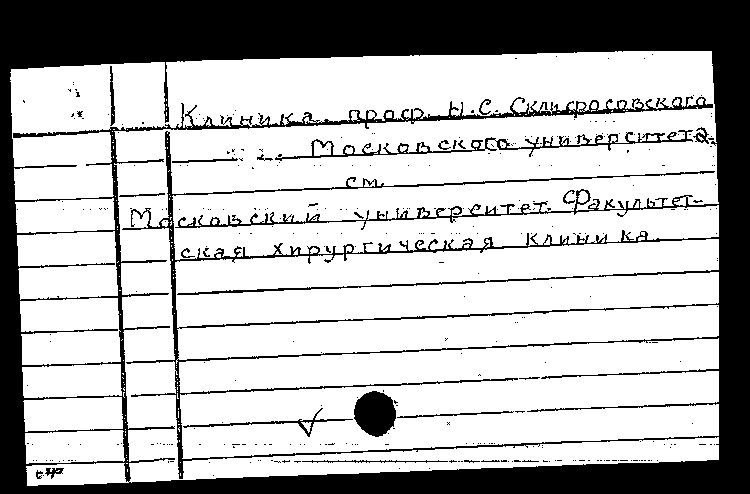 Клиника проф. Н.С. Склифосовского
Московского университета
см.
Московский университет. Факультет-
ская хирургическая клиника.